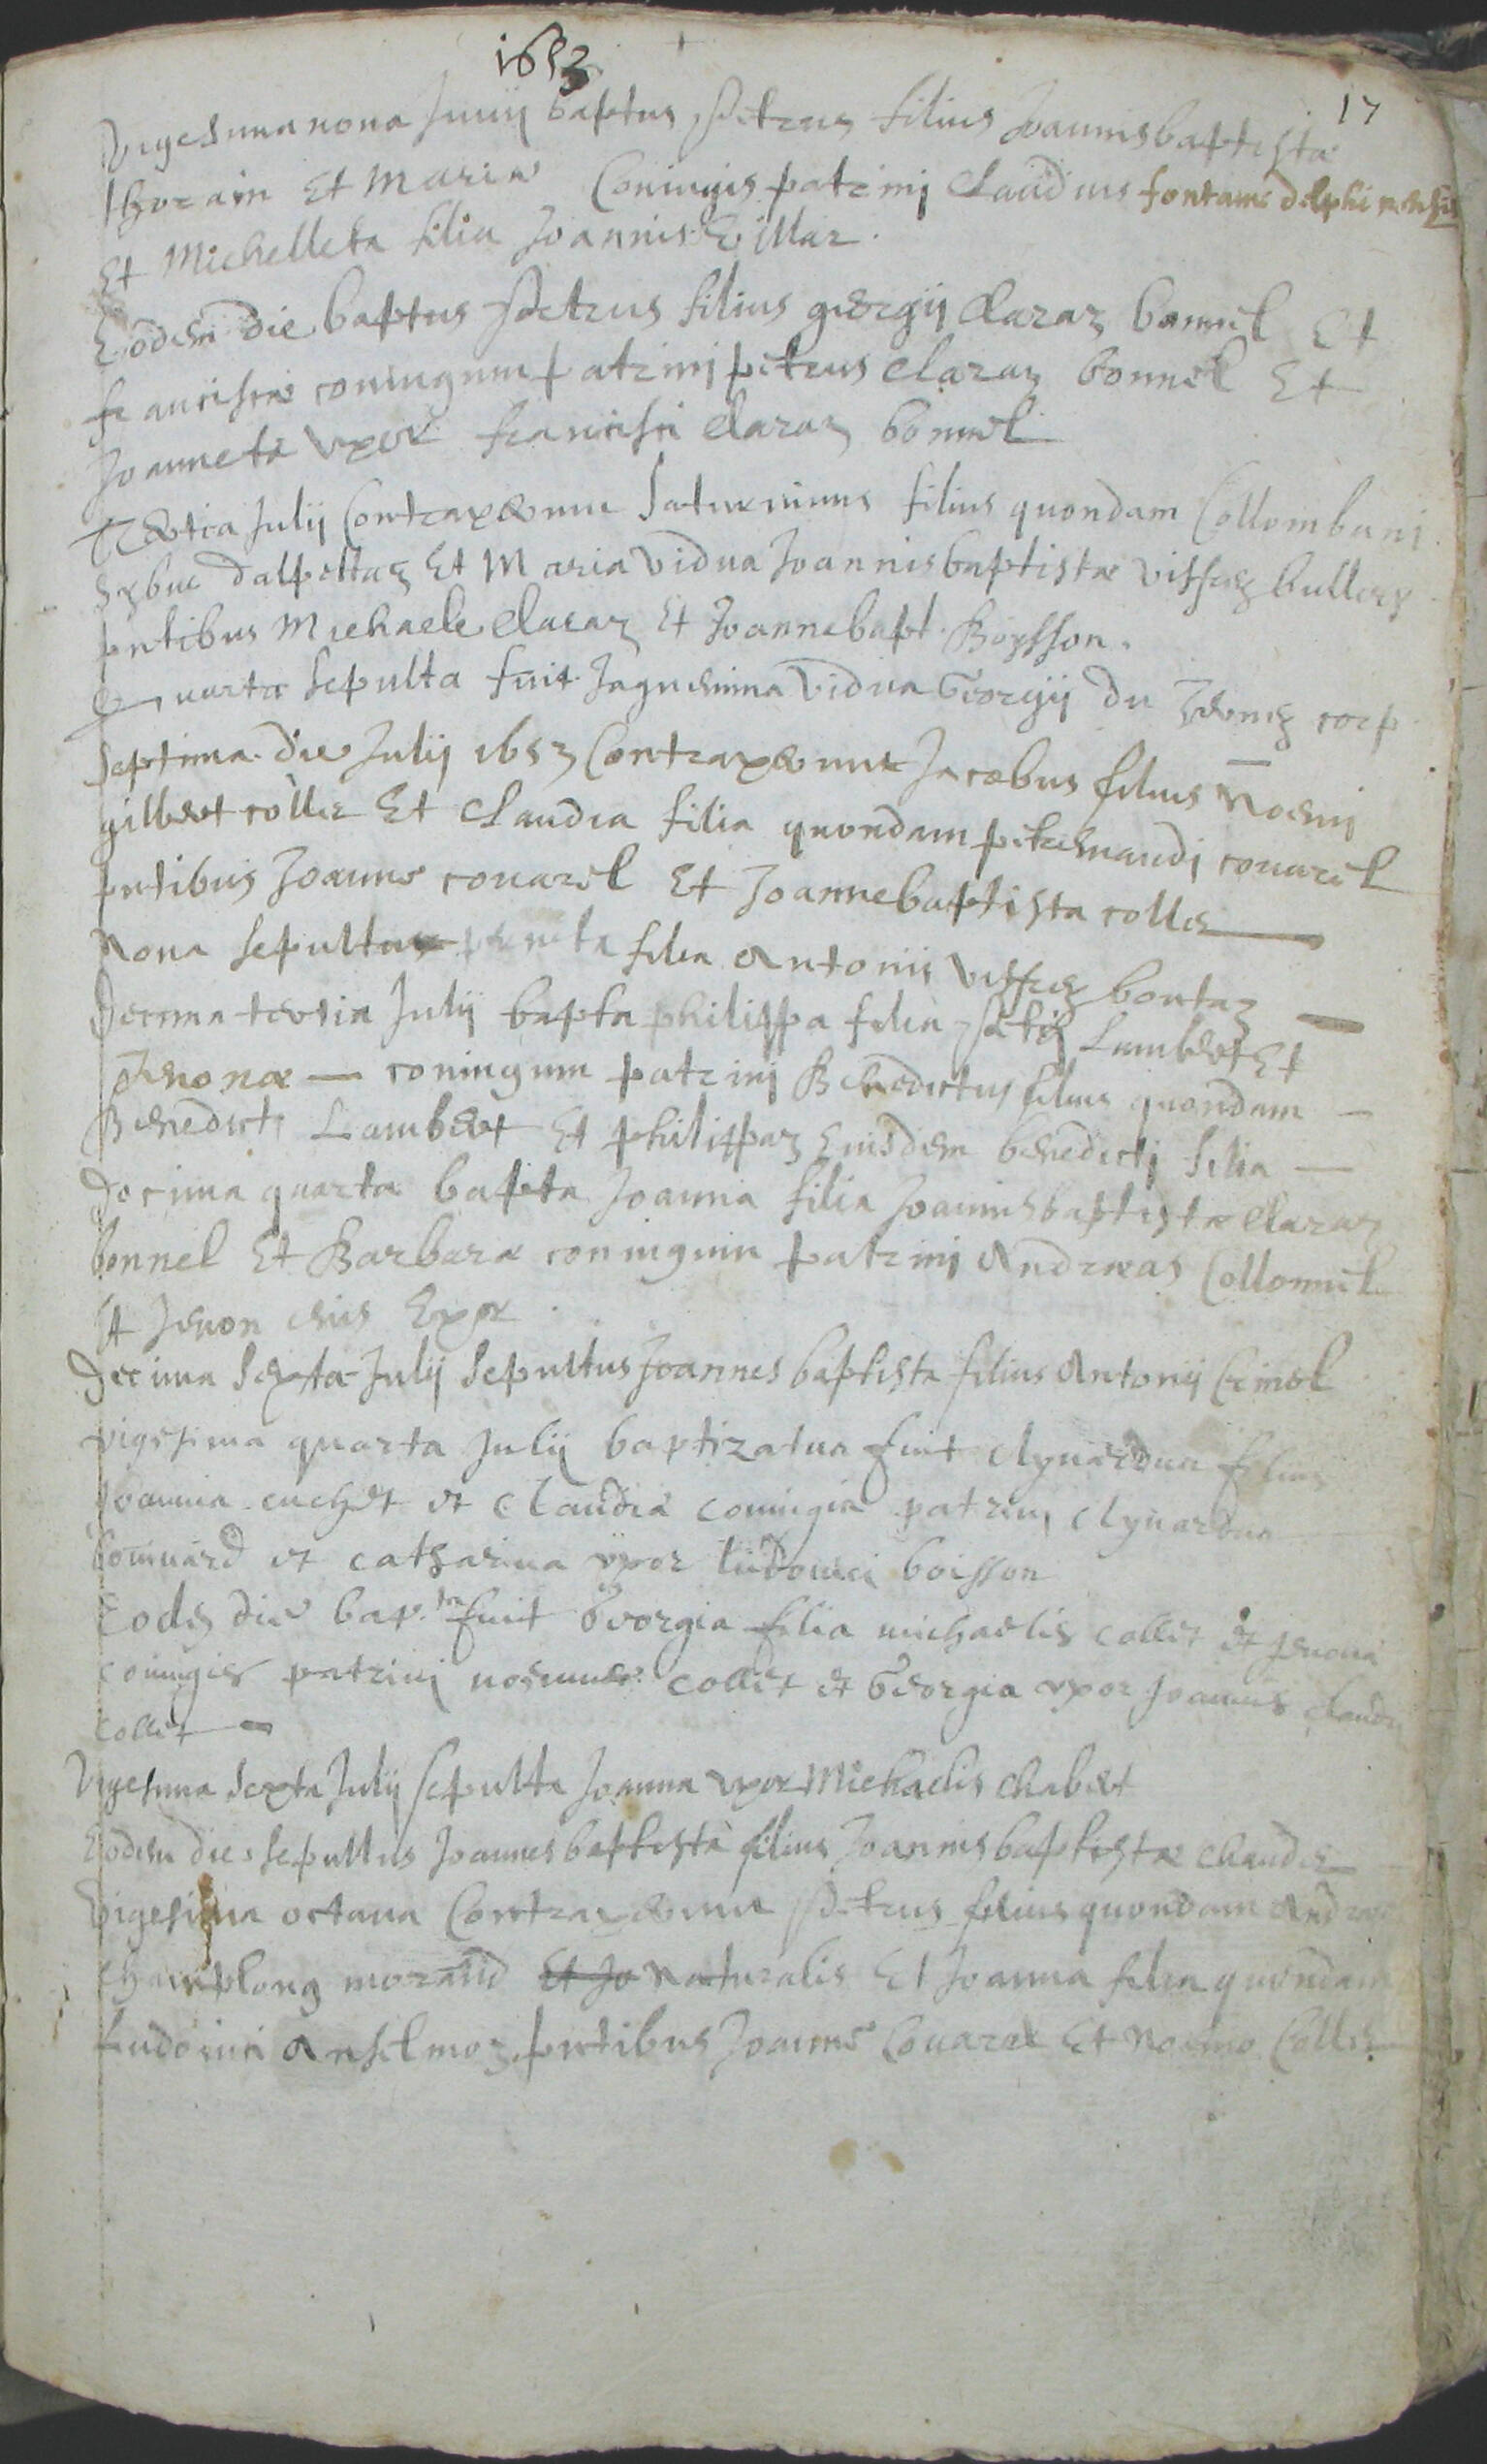 1653
17
Vigesima nona Junij baptus Petrus filius Joannisbaptistæ
thorain Et Mariæ Coniugis patrinj Claudius fontane delphinensis
Et Michelleta filia Joannis Villar.
Eodem die baptus Petrus filius georgij Claraz bonnel Et
franciscæ coniugum patrinj petrus Claraz bonnel Et
Joanneta vxor francisci Claraz bonnel
Tertia Julij Contraxerunt Saturninus filius quondam Collombani
dalpettaz Et Maria vidua Joannisbaptistæ viffrey
pntibus Michaele Claraz Et Joannebapt. Boysson.
Quarta sepulta fuit Jaquemina vidua Georgij du
Septima die Julij 1653 Contraxerunt Jacobus filius Noemj
gilbert collet Et Claudia filia quondam petremandi couarel
pntibus Joanne couarel Et Joannebaptista collet
Nona sepulta perneta filia Antonii viffrey bontaz
Decima tertia Julij bapta philippa filia Petrj Lambert Et
Jenonæ coniugum patrinj Benedictus filius quondam
Benedicti Lambert Et philippaz Eiusdem benedictj filia
Decima quarta bapta Joanna filia Joannisbaptistæ Claraz
bonnel Et Barbaræ coniugum patrinj Andreas Collonnel
Et Jenon eius Vxor.
Decima Sexta Julij sepultus Joannes baptista filius Antonij Crinel
vigesima quarta Julij baptizatus fuit Aynardus filius
Joannis cuchet et Claudiæ coniugis patrinj Aynardus
bonnard et catharina vxor ludouici boisson
Eodem die bap.ta fuit Georgia filia michaelis collet et Jenonæ
coniugis patrinj noemus collet et Georgia vxor Joannis Claudij
collet
Vigesima sexta Julij sepulta Joanna vxor Michaelis Chabert
Eodem die sepultus Joannes baptista filius Joannisbaptistæ Chaudet
Vigesima octaua Contraxerunt Petrus filius quondam Andreæ
Champlong moraud Et Jo naturalis Et Joanna filia quondam
Ludouici Anselmoz pntibus Joanne Couarel Et Noemo Collet